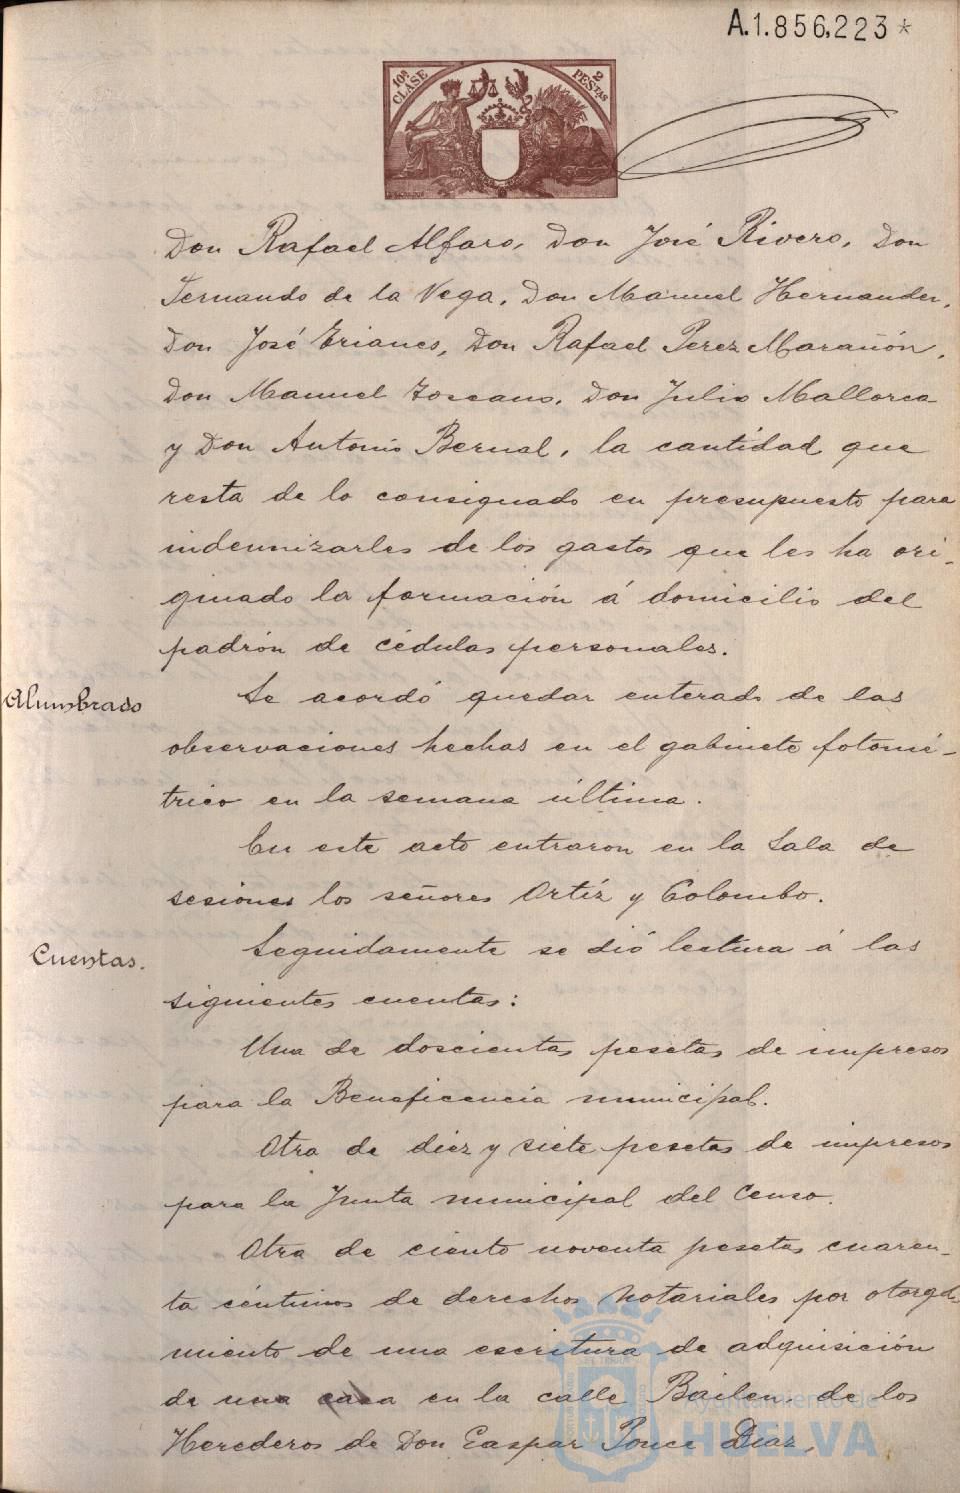 A.1.856,223*
10ª CLASE
2 PESTAS
Don Rafael Alfaro, Don José Rivero, Don
Fernando de la Vega, Don Manuel Hernander,
Don José Erianes, Don Rafael Perez Marañón,
Don Manuel Toscano, Don Julio Mallorca
y Don Antonio Bernal, la cantidad que
resta de lo consignado en presupuesto para
indemnizarles de los gastos que les ha ori-
ginado la formación á domicilio del
padrón de cédulas personales.
Alumbrado
Se acordó quedar enterado de las
observaciones hechas en el gabinete fotomé-
trico en la semana última.
En este acto entraron en la Sala de
sesiones los señores Ortíz y Colombo.
Cuentas.
Seguidamente se dió lectura á las
siguientes cuentas:
Una de doscientas pesetas de impresos
para la Beneficencia municipal.
Otra de diez y siete pesetas de impresos
para la Junta municipal del Censo.
Otra de ciento noventa pesetas cuaren-
ta céntimos de derechos notariales por otorga
miento de una escritura de adquisición
de una casa en la calle Bailen, de los
Herederos de Don Gaspar Ponce Diaz,
Ayuntamiento de
HUELVA